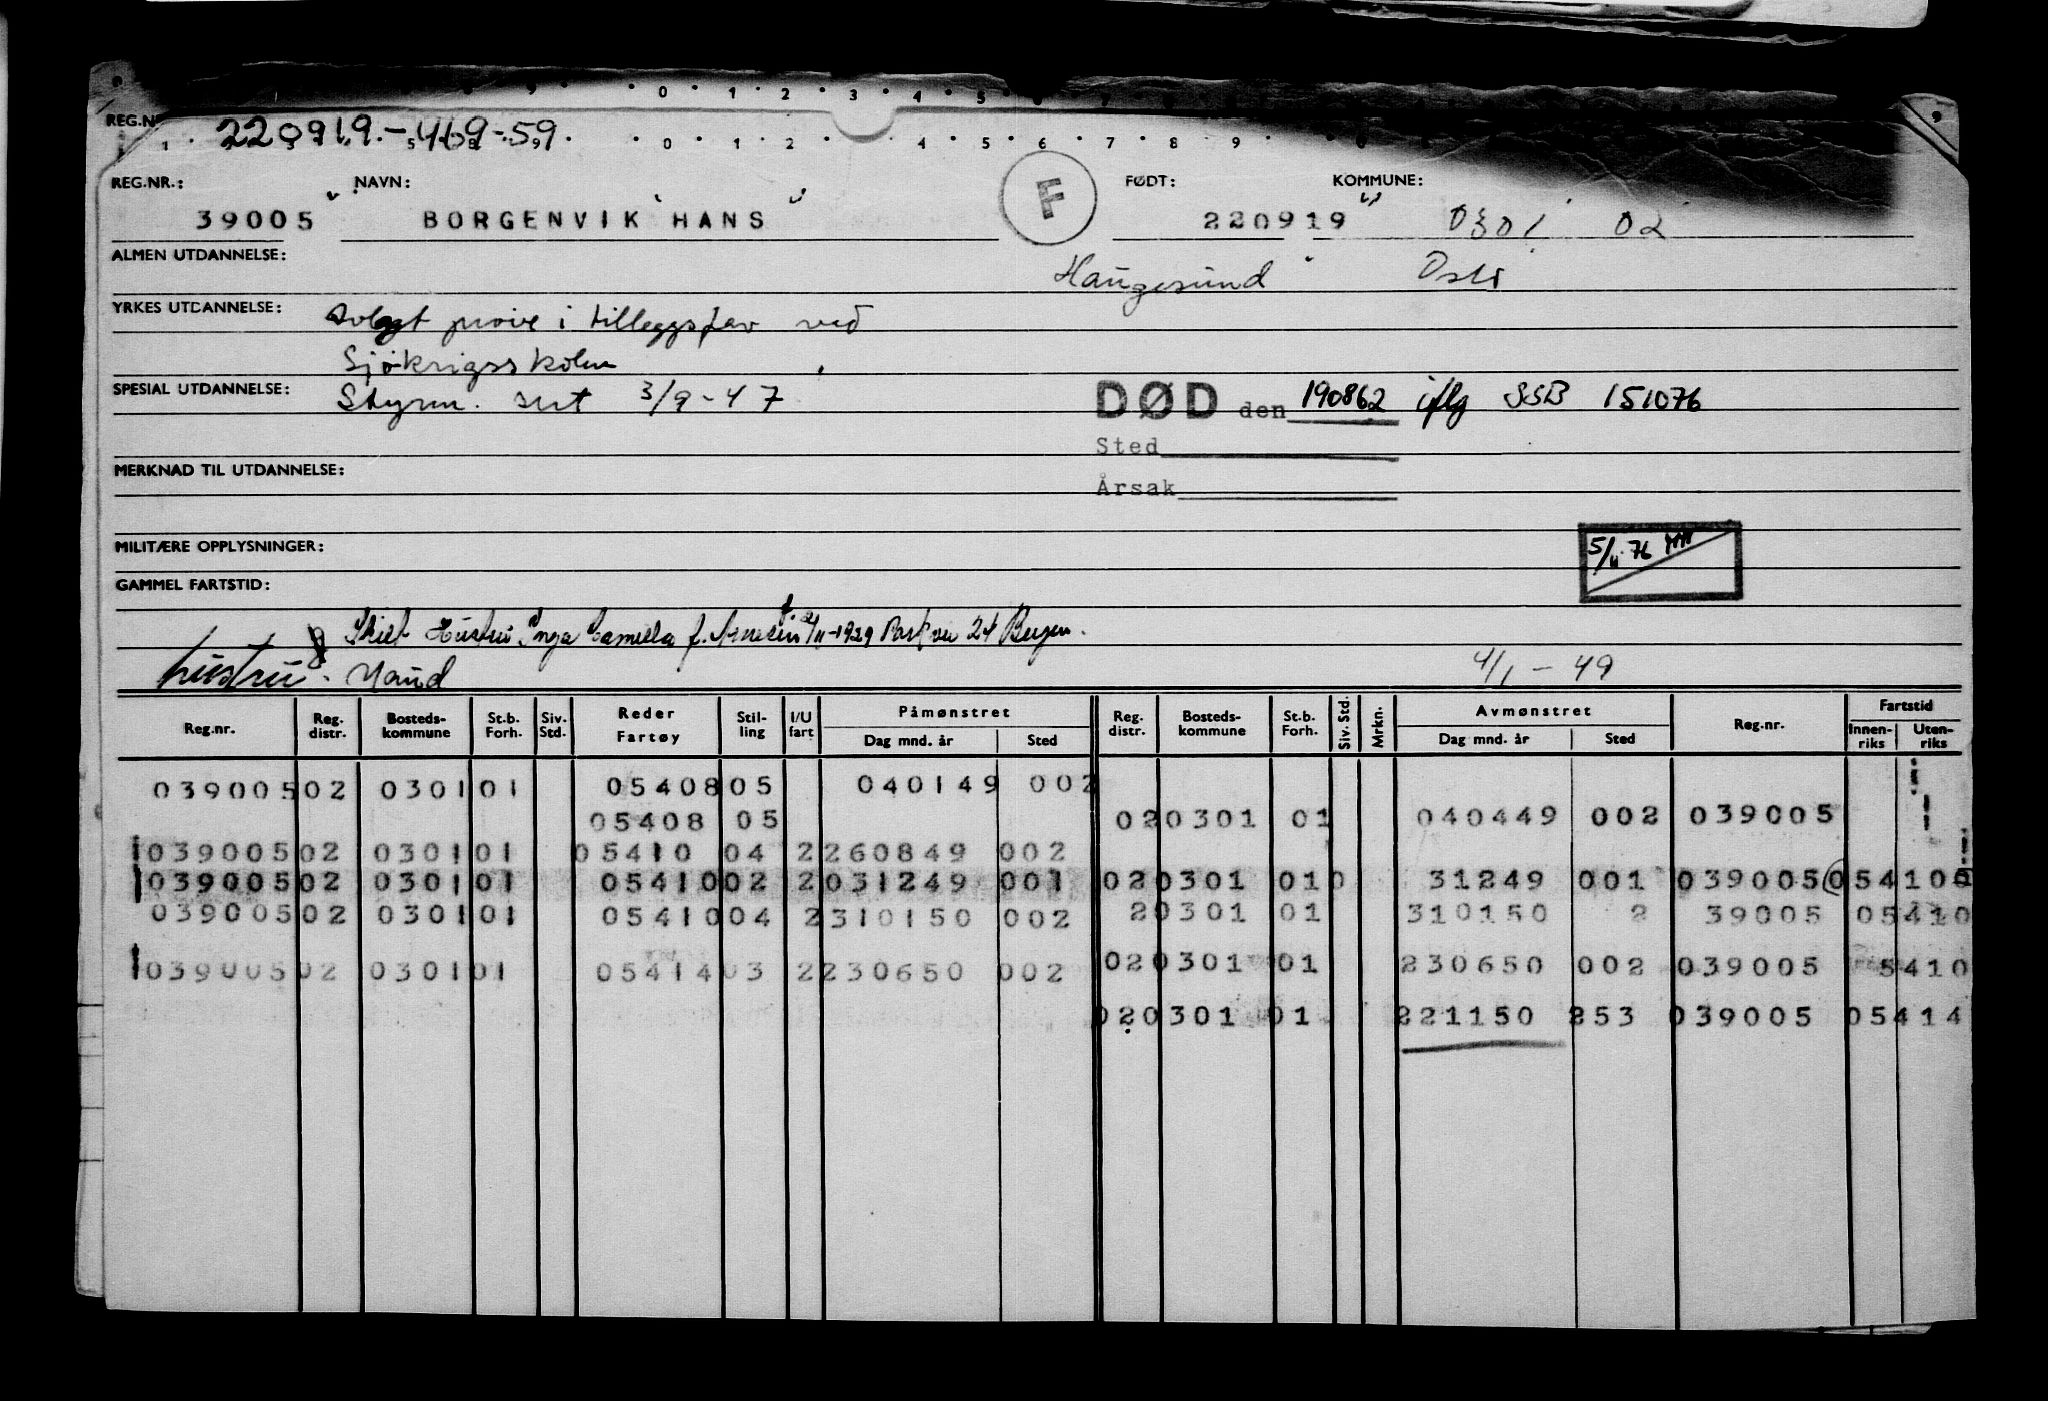 REG.N 220919.-419-59.
REG.NR.: NAVN: FØDT: KOMMUNE:
39005 BORGENVIK HANS F 220919 0301 02
ALMEN UTDANNELSE: Haugesund Oslo
YRKES UTDANNELSE: avlagt prøve i tilleggsfav ved
Sjøkrigsskolen
SPESIAL UTDANNELSE: Styrm. sert 3/9-47 DØD den 190862 iflg SSB 151076
Sted
MERKNAD TIL UTDANNELSE:
Årsak
MILITÆRE OPPLYSNINGER: 5/11 76
GAMMEL FARTSTID:
Skilt Hustru Inga Camilla f. 1929 24 Bergen.
hustru. 4/1-49
Reg.nr. Reg. distr. Bosteds-kommune St.b. Forh. Siv. Std. Reder Fartøy Stil-ling I/U fart Påmønstret Dag mnd. år Sted Reg. distr. Bosteds-kommune St.b. Forh. Siv. Std. Mrkn. Avmønstret Dag mnd. år Sted Reg.nr. Fartstid Innen-riks Uten-riks
039005 02 0301 01 05408 05 040149 002
05408 05 02 0301 01 040449 002 039005
039005 02 0301 01 05410 04 2 260849 002
039005 02 0301 01 05410 02 2 031249 001 02 0301 01 0 31249 001 039005 05410
039005 02 0301 01 05410 04 2 310150 002 2 0301 01 310150 2 39005 05410
039005 02 0301 01 05414 03 2 230650 002 02 0301 01 230650 002 039005 5410
02 0301 01 221150 253 039005 05414